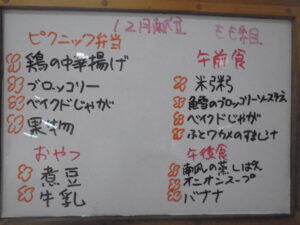 12月献立
もも組
ピクニック弁当
鶏の中華揚げ
ブロッコリー
ベイクドじゃが
果物
おやつ
煮豆
牛乳
午前食
米粥
魚鱈のブロッコリーソース
ベイクドじゃが
ふとワカメのすまし汁
午後食
南瓜の蒸しぱん
オニオンスープ
バナナ